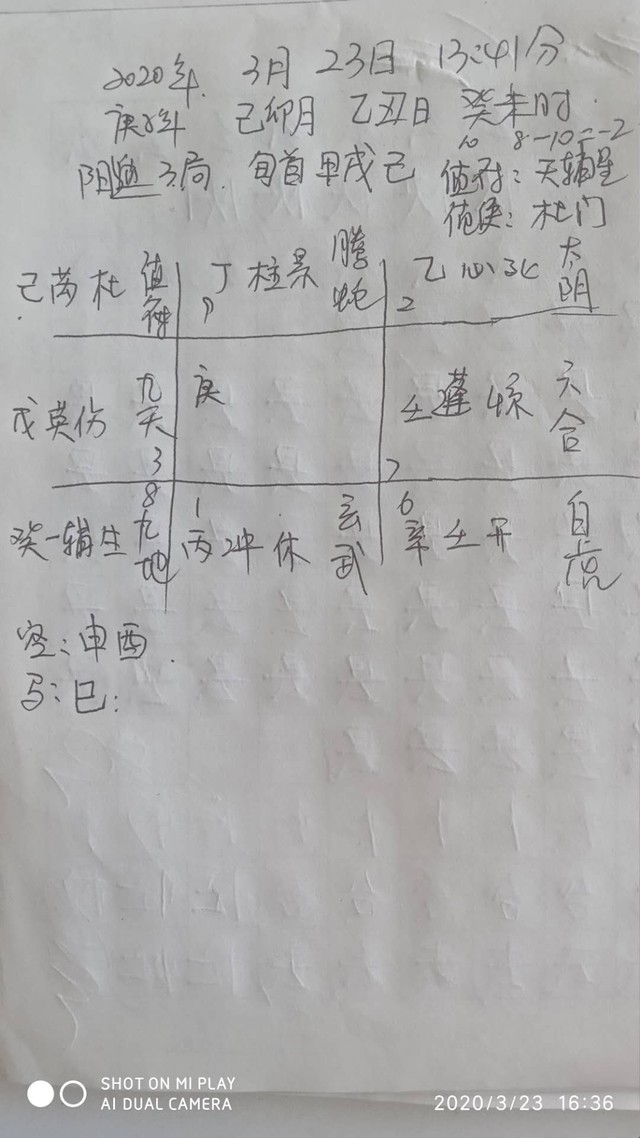 2020年 3月 23日 13:41分
庚子年 己卯月 乙丑日 癸未时
10 8-10=-2
阳遁3局 旬首甲戌己 值符：天辅星
值使：杜门
己芮杜 值符 丁柱景 螣蛇 乙心死 太阴
9 2
戊英伤 九天 庚 壬蓬惊 六合
3 7
8 1 6
癸辅生 九地 丙冲休 玄武 辛任开 白虎
空：申酉
马：巳：
SHOT ON MI PLAY
AI DUAL CAMERA
2020/3/23 16:36